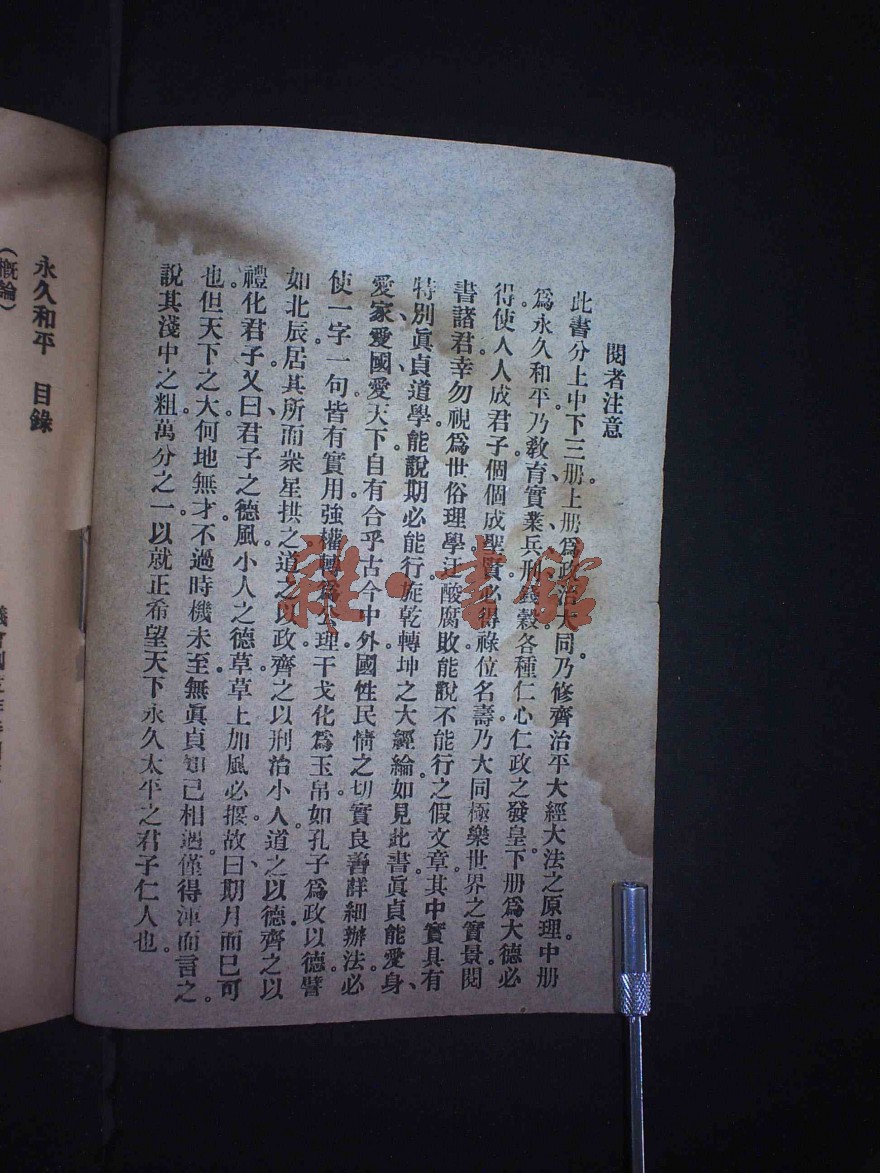 閱者注意
此書分上中下三册。上册爲政治大同。乃修齊治平大經大法之原理。中册
爲永久和平。乃教育、實業、兵刑、錢穀、各種仁心仁政之發皇。下册爲大德必
得。使人人成君子。個個成聖賢。必得祿位名壽。乃大同極樂世界之實景。閱
書諸君。幸勿視爲世俗理學。迂酸腐敗。能說不能行之假文章。其中實具有
特別眞貞道學。能說期必能行。旋乾轉坤之大經綸。如見此書。眞貞能愛身、
愛家、愛國、愛天下。自有合乎古今中外國性民情之切實良善詳細辦法。必
使一字一句。皆有實用。強權轉爲公理。干戈化爲玉帛。如孔子爲政以德。譬
如北辰。居其所而衆星拱之。道之以政。齊之以刑。治小人。道之以德。齊之以
禮。化君子。又曰君子之德風。小人之德草。草上加風必揠。故曰期月而已可
也。但天下之大。何地無才。不過時機未至。無眞貞知己相遇。僅得渾而言之。
說其淺中之粗。萬分之一。以就正希望天下永久太平之君子仁人也。
永久和平 目錄
(概論)
雜·書館